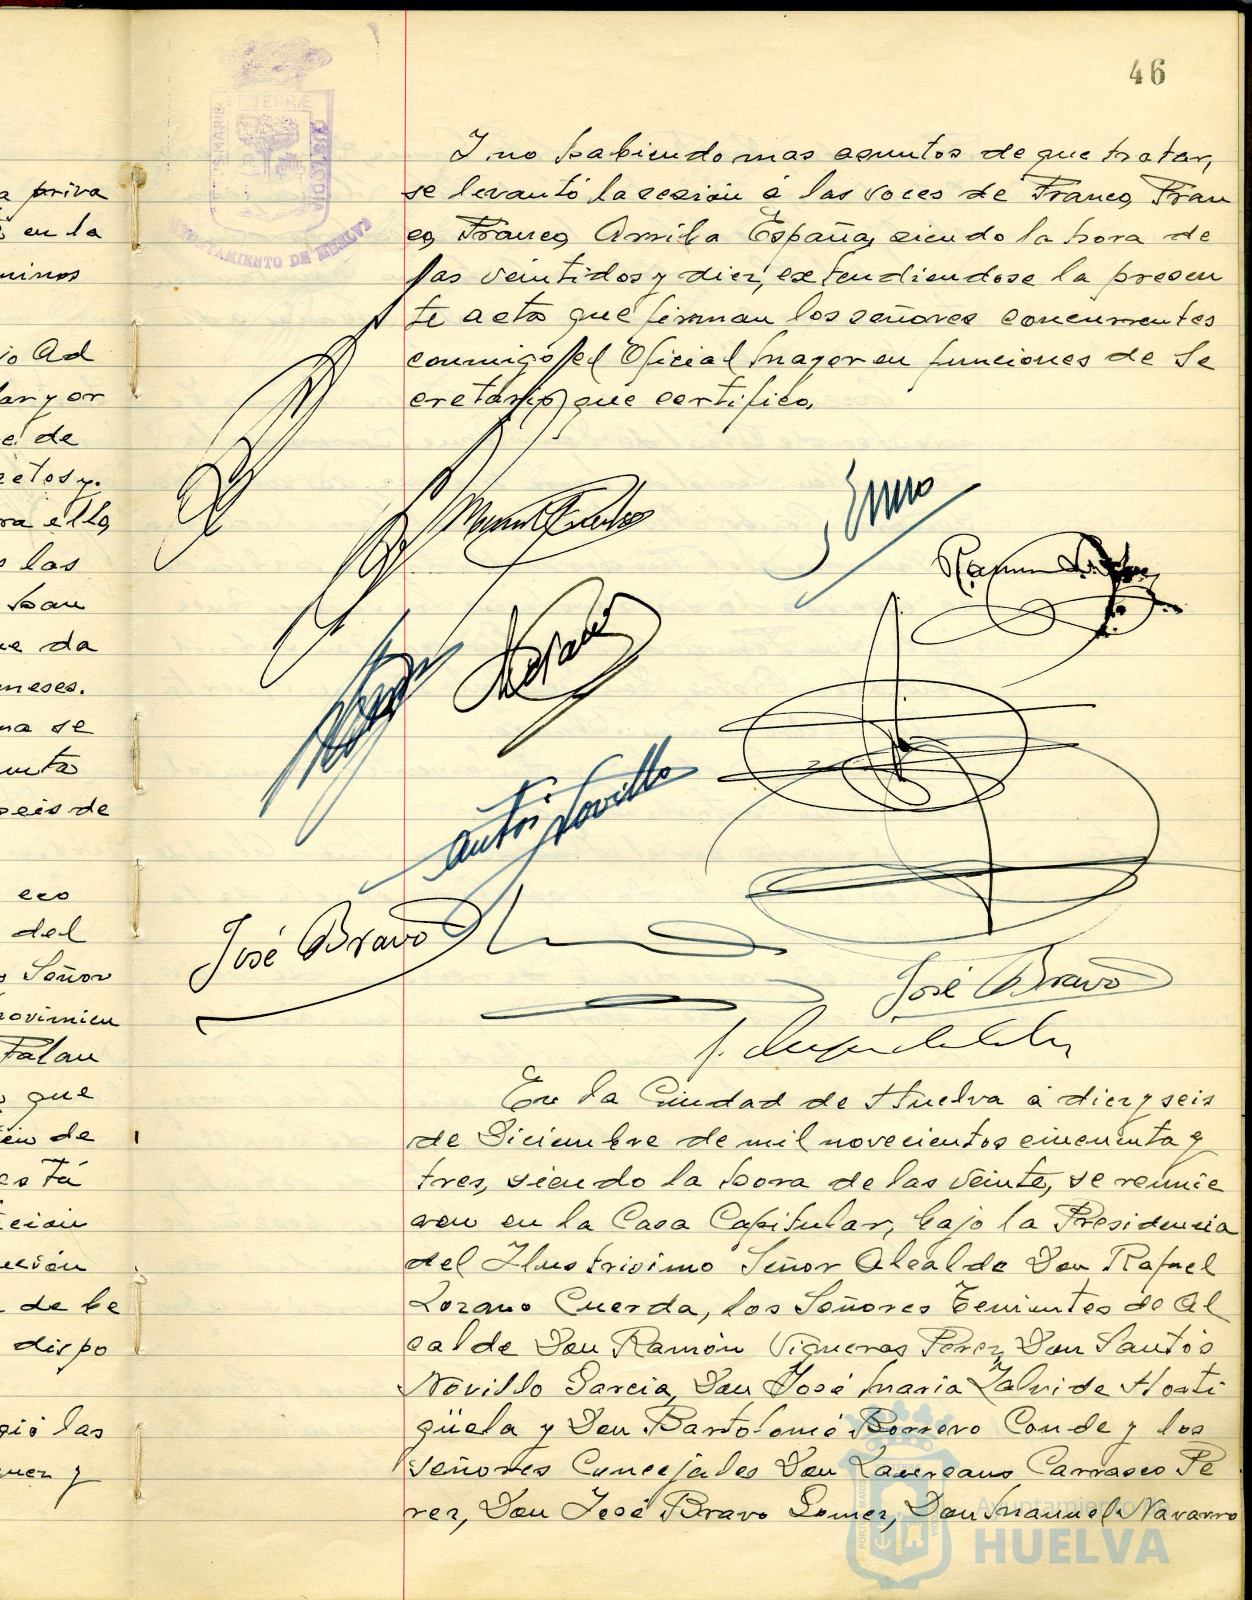 46
a priva
en la
minos
io Ad
lar y or
e de
retos y.
ra ello,
s las
han
ue da
meses.
ma se
unta
seis de
eco
del
Señor
rovimien
Palau
que
de
esta
cion
ución
de be
dispo
gió las
uez y
Y no habiendo mas asuntos de que tratar,
se levantó la sesión á las voces de Franco, Fran
co, Franco, Arriba España, siendo la hora de
las veintidos y diez, extendiendose la presen
te acta que firman los señores concurrentes
conmigo, el Oficial Mayor en funciones de Se
cretario, que certifico,
Ramon
Novillo
José Bravo
José Bravo
En la Ciudad de Huelva á diez y seis
de Diciembre de mil novecientos cincuenta y
tres, siendo la hora de las veinte, se reunie
ron en la Casa Capitular, bajo la Presidencia
del Ilustrisimo Señor Alcalde Don Rafael
Lozano Cuerda, los Señores Tenientes de Al
calde Don Ramón Vigueras Perez, Don Santos
Novillo Garcia, Don José Maria Zalvide Horti
güela y Don Bartolomé Borrero Conde y los
señores Concejales Don Laureano Carrasco Pe
rez, Don José Bravo Gomez, Don Manuel Navarro
AYUNTAMIENTO DE HUELVA
Ayuntamiento de
HUELVA